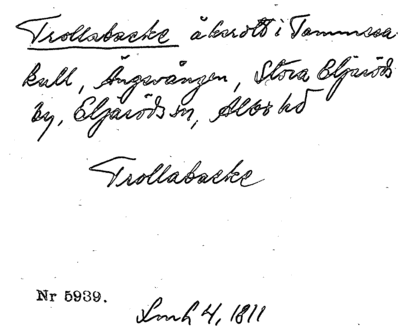 Trollabacke åkerott i Tommosa
kull, Ängavången, Stora Eljaröds
by, Eljaröds sn, Albo hd
Trollabacke
Nr 5939.
Lmh 4, 1811